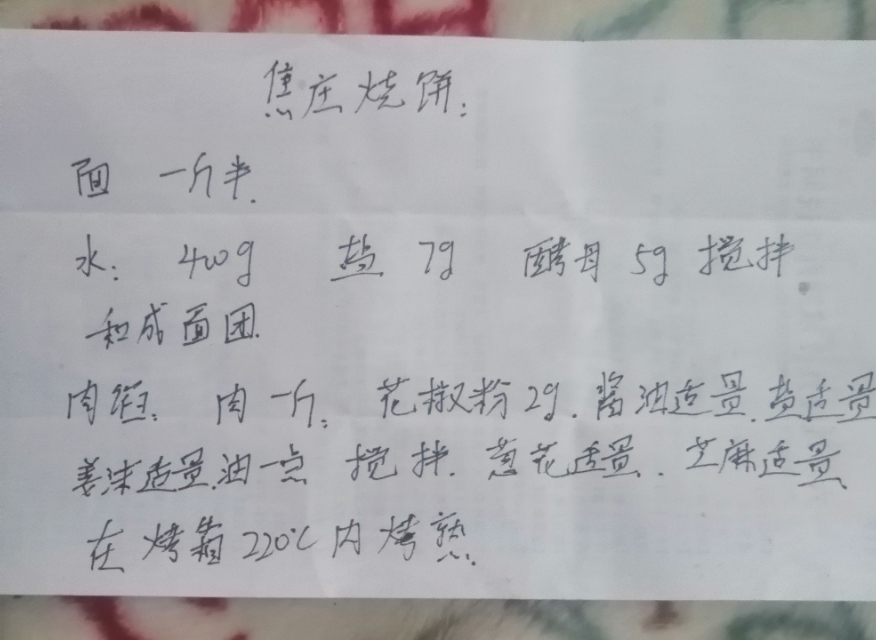 焦庄烧饼：
面 一斤半.
水： 400g 盐 7g 酵母 5g 搅拌
和成面团.
肉馅： 肉一斤： 花椒粉2g. 酱油适量. 盐适量
姜沫适量.油一点 搅拌. 葱花适量. 芝麻适量
在烤箱220℃内烤熟.